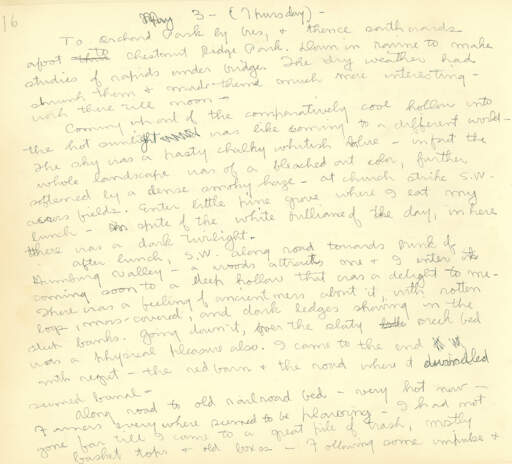 16
May 3 - (Thursday) -
To Orchard Park by bus, & thence southwards
afoot to Chestnut Ridge Park. Down in ravine to make
studies of rapids under bridge. The dry weather had
shrunk them & made them much more interesting -
Coming up out of the comparatively cool hollow into
the hot sunlight was like coming to a different world -
The sky was a pasty chalky whitish blue - in fact the
whole landscape was of a bleached out color, further
softened by a dense smoky haze - at church strike S.W.
across fields. Enter little pine grove where I eat my
lunch - In spite of the white brilliance of the day, in here
there was a dark twilight.
After lunch, S.W. along road towards bank of
valley - a woods attracts me & I enter it
coming soon to a deep hollow that was a delight to me -
There was a feeling of ancientness about it, with rotten
logs, moss-covered, and dark ledges showing in the
steep banks. Going down it, over the slaty creek bed
was a physical pleasure also. I came to the end
with regret - the red barn & the road where it
seemed banal -
Along road to old railroad bed - very hot now -
Farmers everywhere seemed to be plowing - I had not
gone far till I came to a great pile of trash, mostly
basket tops & old boxes - Following some impulse &